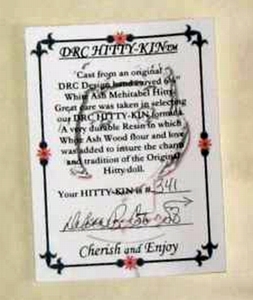 DRC HITTY-KIN™
Cast from an original
DRC Design hand carved 6¼"
White Ash Mehitabel Hitty.
Great care was taken in selecting
our DRC HITTY-KIN formula.
A very durable Resin in which
White Ash Wood flour and love
was added to insure the charm
and tradition of the Original
Hitty doll.
Your HITTY-KIN is # 341
Cherish and Enjoy